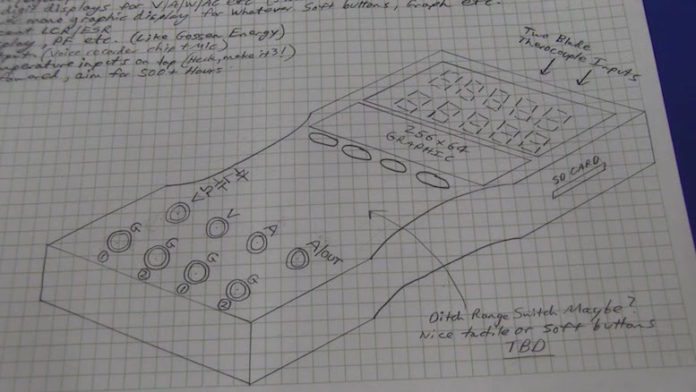 displays for V/A/W/AC etc
more graphic display for whatever. Soft buttons, Graph etc.
LCR/ESR
PF etc. (Like Gossen Energy)
(Voice recorder chip + Mic)
inputs on top (Heck, make it 3!)
aim for 500+ Hours
Two Blade
Thermocouple Inputs
256x64
GRAPHIC
SD CARD
V
A
A/OUT
G
G
G
G
1
2
1
2
Ditch Range Switch Maybe?
Nice tactile or soft buttons
TBD